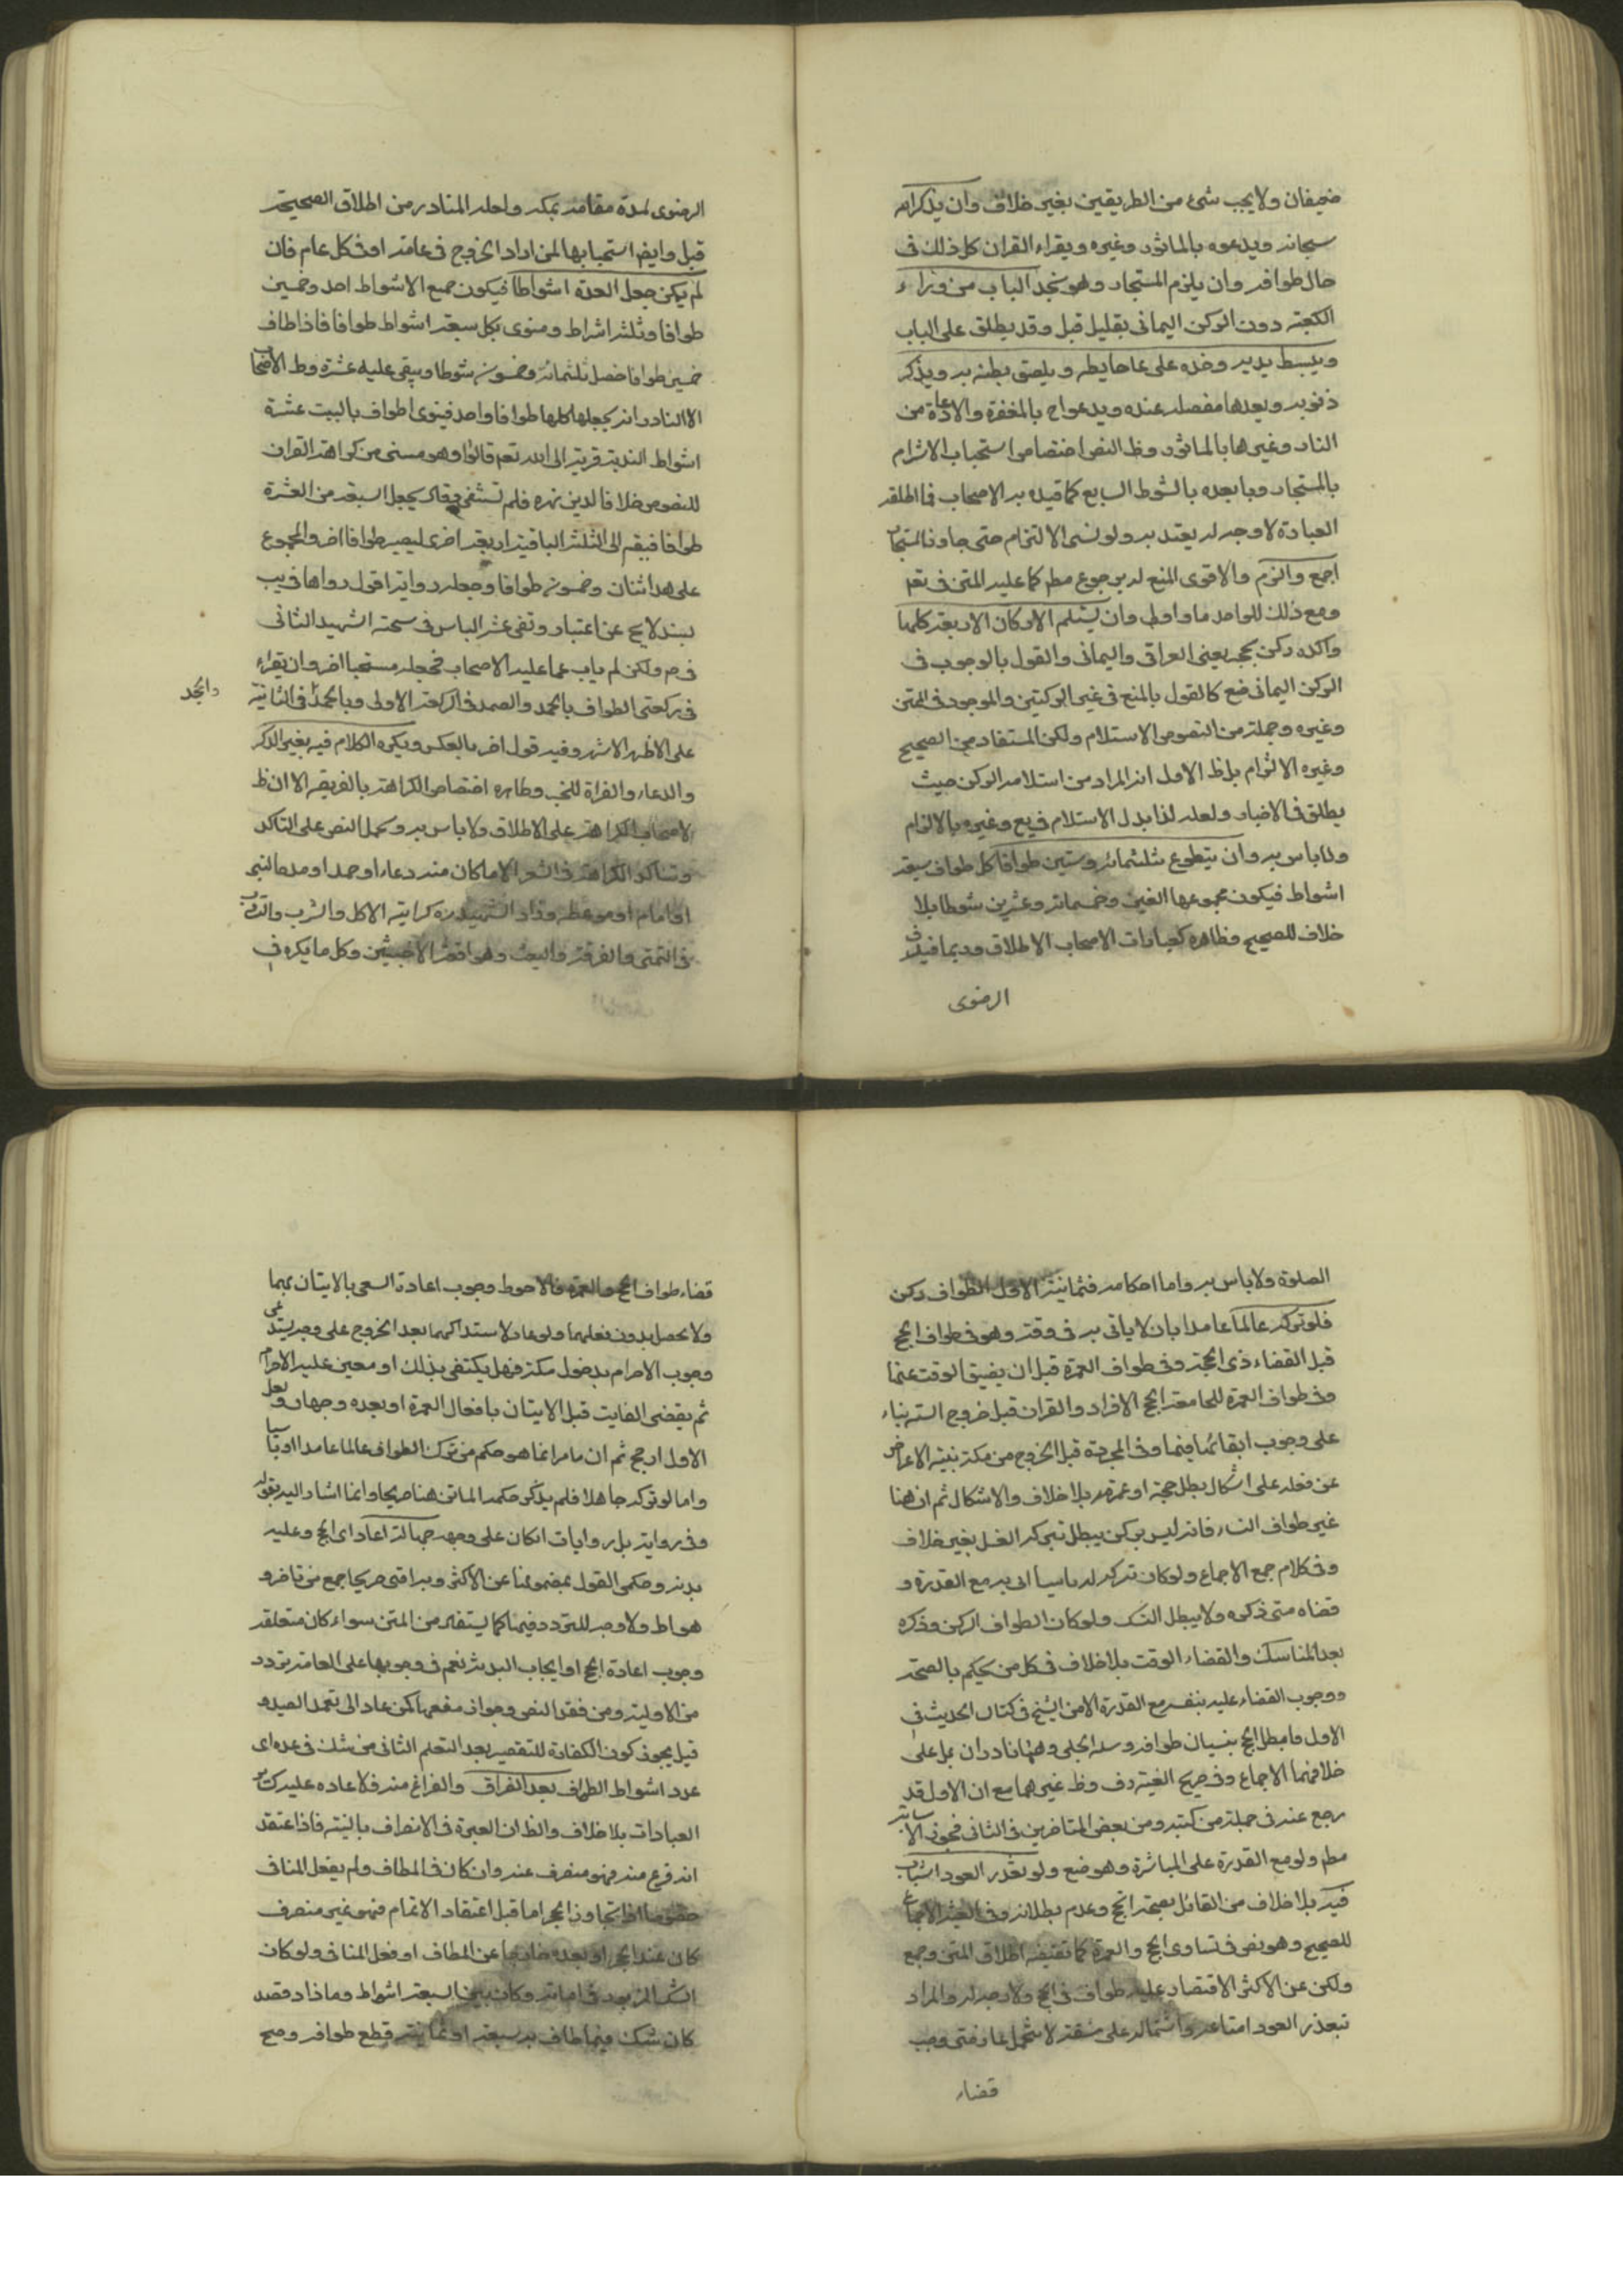 ضعيفان ولا يجب شئ من الطريقين بغير خلاف وان يذكر الله
سبحانه ويدعوه بالماثور وغيره ويقراء القران كل ذلك فى
حال طوافه وان يلزم المستجار وهو بحذاء الباب من وراء
الكعبة دون الركن اليمانى بقليل قبل وقد يطلق على الباب
ويبسط يديه وخده على حايطه ويلصق بطنه به ويذكر
ذنوبه ويعدها مفصله عنده ويدعو ح بالمغفرة والاعاذة من
النار وغيرها بالماثور وظ النص اختصاص استحباب الالتزام
بالمستجار وما بعده بالشوط السابع كما قيده به الاصحاب فما اطلقه
العبارة لا وجه له يعتد به ولو نسى الالتزام حتى جاوز المستجار
رجع والتزم والاقوى المنع له من رجوع مطم كما عليه المتن فى يع
ومع ذلك للواحد ما واولى وان يستلم الاركان الاربعة كلها
واكده ركن الحجر يعنى العراقى واليمانى والقول بالوجوب فى
الركن اليمانى ضع كالقول بالمنع فى غير الركنين والموجود فى المتن
وغيره وجملة من النصوص الاستلام ولكن المستفاد من الصحيح
وغيره الالتزام بل ظ الاول انه المراد من استلام الركن حيث
يطلق فى الاخبار ولعله لذا بدل الاستلام فى يع وغيره بالالتزام
ولا باس به وان يتطوع بثلثمائة وستين طوافا كل طواف سبعة
اشواط فيكون مجموعها الفين وخمسمائة وعشرين شوطا بلا
خلاف للصحيح وظاهره كعبارات الاصحاب الاطلاق وربما قيد فى
الرضوى
الرضوى لمدة مقامه بمكة ولعله المتبادر من اطلاق الصحيحة
قبل وايض استحبابها لمن اراد الخروج فى عامه او فى كل عام فان
لم يكن جعل العدة اشواطا فيكون جميع الاشواط احد وخمسين
طوافا وثلثة اشواط وينوى بكل سبعة اشواط طوافا فاذا طاف
خمسين طوافا حصل ثلثمائة وخمسون شوطا ويبقى عليه عشرة وظ الاصحاب
الا النادر انه يجعلها كلها طوافا واحد فينوى اطواف بالبيت عشرة
اشواط الندبة قربة الى الله تعم قالوا وهو مستثنى من كراهة القران
للنصوص خلافا لابن زهره فلم تستثنى وقال يجعل السبعة من العشرة
طوافا فيقم الى الثلثة الباقية اربعة اخرى ليصير طوافا اخر والمجموع
على هذا اثنان وخمسون طوافا وجعله رواية اقول رواها فى يب
بسند لا يخ عن اعتبار ونفى عنه الباس فى صحته الشهيد الثانى
فى م ولكن لم ياب عما عليه الاصحاب فجعله مستحبا اخر وان يقراء
فى ركعتى الطواف بالحمد والصمد فى الركعة الاولى وبالحمد فى الثانية
والجحد
على الاظهر الاشهر وفيه قول اخر بالعكس ويكره الكلام فيه بغير الذكر
والدعاء والقراة للخبر وظاهره اختصاص الكراهة بالفريضة الا ان ظ
الاصحاب الكراهة على الاطلاق ولا باس به ويحمل النص على التاكد
وتتاكد الكراهة فى الشعر الا ما كان منه دعاء او حمد او مدح النبى
او امام او موعظة وزاد الشهيد ره كراهية الاكل والشرب والتثاوب
فى التمتى والفرقعة والعبث ومدافعة الاخبثين وكل ما يكره فى
الصلوة ولا باس به واما احكامه فثمانية الاول الطواف ركن
فلو تركه عالما عامدا بان لا ياتى به فى وقته وهو فى طواف الحج
قبل انقضاء ذى الحجة وفى طواف العمرة قبل ان يضيق الوقت عنها
وفى طواف العمرة المجامعة لحج الافراد والقران قبل خروج السنة بناء
على وجوب ايقائها فيها وفى المجردة قبل الخروج من مكة بنية الاعراض
عن فعله على اشكال بطل حجة او عمرته بلا خلاف والاشكال ثم ان هنا
غير طواف النساء فانه ليس بركن يبطل بتركه النسك بغير خلاف
وفى كلام جمع الاجماع ولو كان تركه له ناسيا اتى به مع القدرة و
قضاه متى ذكره ولا يبطل النسك ولو كان الطواف الركن وذكره
بعد المناسك وانقضاء الوقت بلا خلاف فى كل من حكم بالصحة
ووجوب القضاء عليه بنفسه مع القدرة الا من الشيخ فى كتاب الحديث فى
الاول فابطل الحج بنسيان طوافه وسه الحلى وهنا نادران بل على
خلافهما الاجماع وفى صريح الغنية وف وظ غيرهما مع ان الاول قد
رجع عنه فى جملة من كتبه ومن بعض المتاخرين فى الثانى فجوز الاستنابة
مطم ولو مع القدرة على المباشرة وهو ضع ولو تعذر العود استناب
فيه بلا خلاف من القائل بصحة الحج وعدم بطلانه وفى الغنية الاجماع
للصحيح وهو نص فى تساوى الحج والعمرة كما تقتضيه اطلاق المتن وجمع
ولكن عن الاكثر الاقتصار عليه طواف فى الحج ولا وجه له والمراد
بتعذر العود امتناعه واشتماله على مشقة لا تتحمل عادة فمتى وجب
قضاء
قضاء طواف الحج والعمرة فالاحوط وجوب اعادة السعى بالايتان بهما
ولا يحصل بدون فعلهما ولو عاد لاستدراكهما بعد الخروج على وجه يستدعى
وجوب الاحرام بدخول مكة فهل يكتفى بذلك او معين عليه الاحرام
ثم يقضى الفايت قبل الايتان بافعال العمرة او بعده وجهان ولعل
الاول ارجح ثم ان ما مر انما هو حكم من ترك الطواف عالما عامدا او ناسيا
واما لو تركه جاهلا فلم يذكر حكمه الماتن هنا صريحا وانما اشار اليه بقوله
وفى رواية بل روايات ان كان على وجه جهالة اعاد اى الحج وعليه
بدنه وحكمى القول بمضمونها عن الاكثر وبه افتى صريحا جمع من تاخر و
هو احوط ولا وجه للتردد فيها كما يستفاد من المتن سواء كان متعلقه
وجوب اعادة الحج او ايجاب البدنة نعم فى وجوبها على العامد تردد
من الاولية ومن فقد النص وجواز منعها كمن عاد الى تعمد الصيد و
قيل يجوز كون الكفارة للتقصير بعد التعلم الثانى من شك فى عدده اى
عدد اشواط الطواف بعد الفراق والفراغ منه فلا اعاده عليه كسائر
العبادات بلا خلاف والظ ان العبرة فى الانصراف بالنية فاذا اعتقد
انه فرغ منه فهو منصرف عنه وان كان فى المطاف ولم يفعل المنافى
خصوصا اذا تجاوز الحجر اما قبل اعتقاد الاتمام فهو غير منصرف
كان عند الحجر او بعده خارجا عن المطاف او فعل المنافى ولو كان
الشك المزبور فى اثنائه وكان بين السبعة اشواط وما زاد فقصد
كان شك فيما طاف به سبعة او ثمانية قطع طوافه وصح